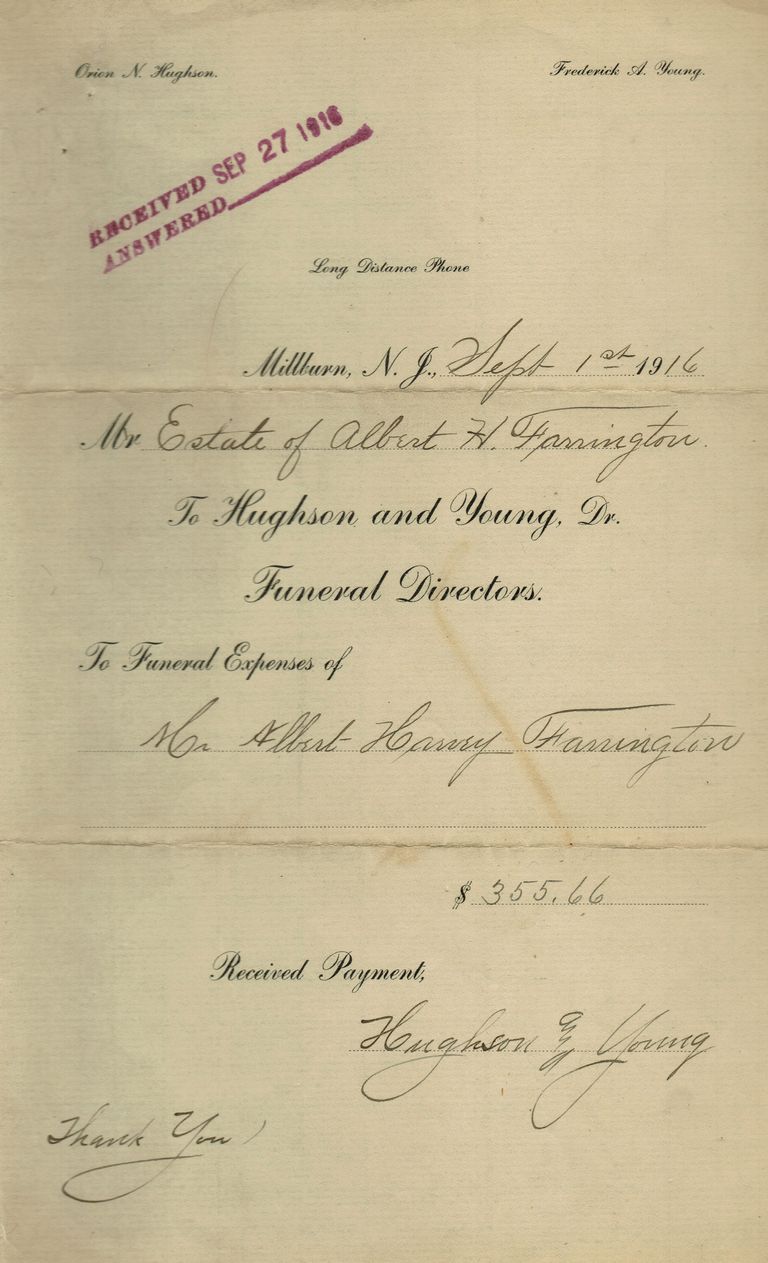 Orion N. Hughson. Frederick A. Young.
RECEIVED SEP 27 1916
ANSWERED
Long Distance Phone
Millburn, N. J., Sept 1st 1916
Mr Estate of Albert H. Farrington.
To Hughson and Young, Dr.
Funeral Directors.
To Funeral Expenses of
Mr Albert Harvey Farrington
$ 355.66
Received Payment,
Hughson & Young
Thank You